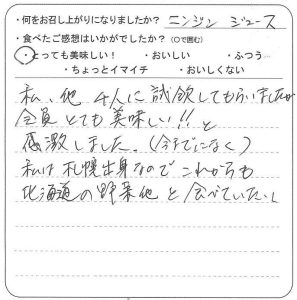 ・何をお召し上がりになりましたか？ ニンジン ジュース
・食べたご感想はいかがでしたか？（○で囲む）
・とっても美味しい！ ・おいしい ・ふつう
・ちょっとイマイチ ・おいしくない
私、他 4人に試飲してもらいましたが
全員とても美味しい!! と
感激しました。（今までになく）
私は札幌出身なので これからも
北海道の野菜他と食べていたい